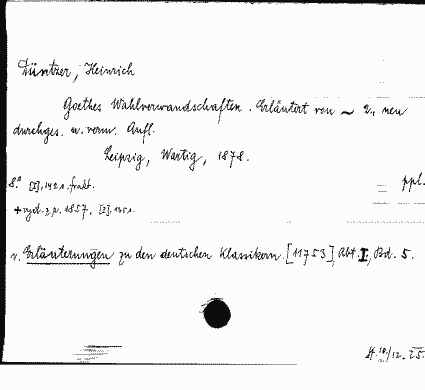 Düntzer, Heinrich
Goethes Wahlverwandschaften. Erläutert von ~ 2., neu
durchges. u. verm. Aufl.
Leipzig, Wartig, 1878.
8.° [2], 142 s. frakt. ppl.
+ wyd. z r. 1857. [2], 135 s.
v. Erläuterungen zu den deutschen Klassikern. [11753], Abt. I, Bd. 5.